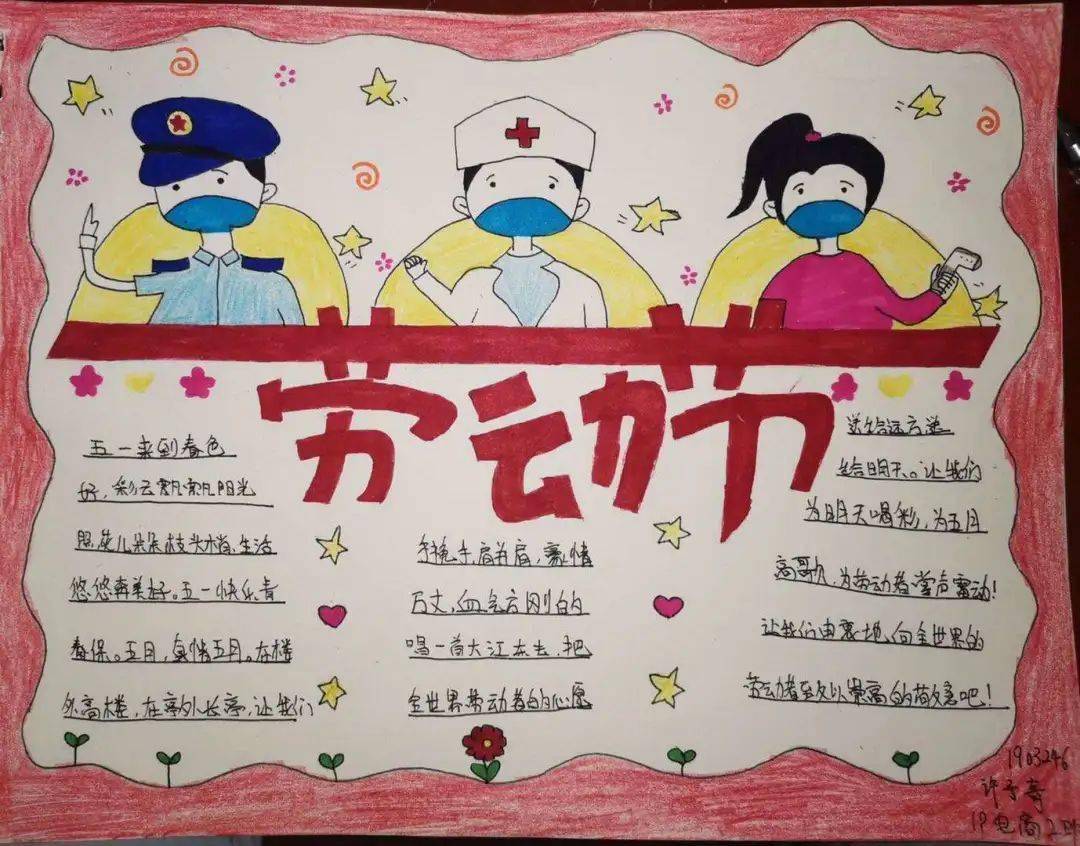 劳动节
五一来到春色
好，彩云飘飘阳光
照，花儿朵朵枝头俏、生活
悠悠奔美好。五一快乐青
春保。五月，真情五月。在楼
外高楼，在亭外长亭，让我们
手挽手，肩并肩，豪情
万丈，血气方刚的
唱一首大江东去，把
全世界劳动者的心愿
送给远方送
给明天。让我们
为明天喝彩，为五月
高歌，为劳动者掌声雷动！
让我们由衷地，向全世界的
劳动者致以崇高的敬意吧！
1903246
许
19电商2班